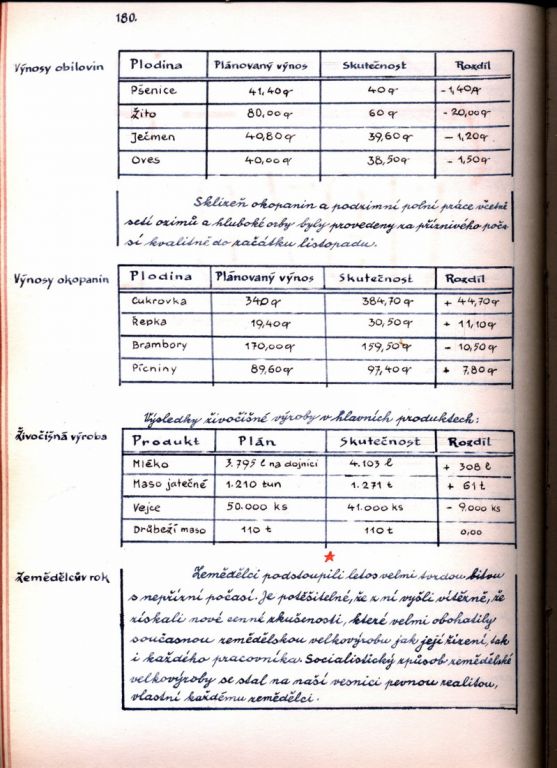 180.
Výnosy obilovin
Plodina Plánovaný výnos Skutečnost Rozdíl
Pšenice 41,40q 40q -1,40q
Žito 80,00q 60q -20,00q
Ječmen 40,80q 39,60q -1,20q
Oves 40,00q 38,50q -1,50q
Sklizeň okopanin a podzimní polní práce včetně
setí ozimů a hluboké orby byly provedeny za příznivého poča
sí kvalitně do začátku listopadu.
Výnosy okopanin
Plodina Plánovaný výnos Skutečnost Rozdíl
Cukrovka 340q 384,70q + 44,70q
Řepka 19,40q 30,50q + 11,10q
Brambory 170,00q 159,50q - 10,50q
Pícniny 89,60q 97,40q + 7,80q
Výsledky živočišné výroby v hlavních produktech:
Živočišná výroba
Produkt Plán Skutečnost Rozdíl
Mléko 3.795 l na dojnici 4.103 l + 308 l
Maso jatečné 1.210 tun 1.271 t + 61 t
Vejce 50.000 ks 41.000 ks - 9.000 ks
Drůbeží maso 110 t 110 t 0,00
Zemědělcův rok
Zemědělci podstoupili letos velmi tvrdou bitvu
s nepřízní počasí. Je potěšitelné, že z ní vyšli vítězně, že
získali nové cenné zkušenosti, které velmi obohatily
současnou zemědělskou velkovýrobu jak její řízení, tak
i každého pracovníka. Socialistický způsob zemědělské
velkovýroby se stal na naší vesnici pevnou realitou,
vlastní každému zemědělci.